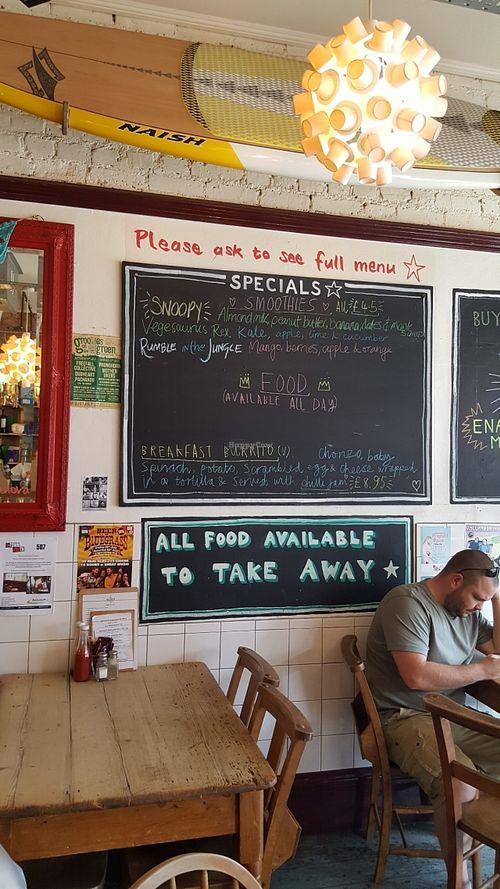 NAISH
Please ask to see full menu
SPECIALS
SMOOTHIES ALL £4.5
SNOOPY Almond milk, peanut butter, banana, dates & maple
Vegesaurus Rex Kale, apple, lime & cucumber
RUMBLE in the JUNGLE Mango, berries, apple & orange
FOOD
(AVAILABLE ALL DAY)
BREAKFAST BURRITO (V) Chorizo, baby
Spinach, potato, Scrambled egg & cheese wrapped
in a tortilla & served with chilli jam £8.95
ALL FOOD AVAILABLE
TO TAKE AWAY
BUY
ENA
M
green
BEER